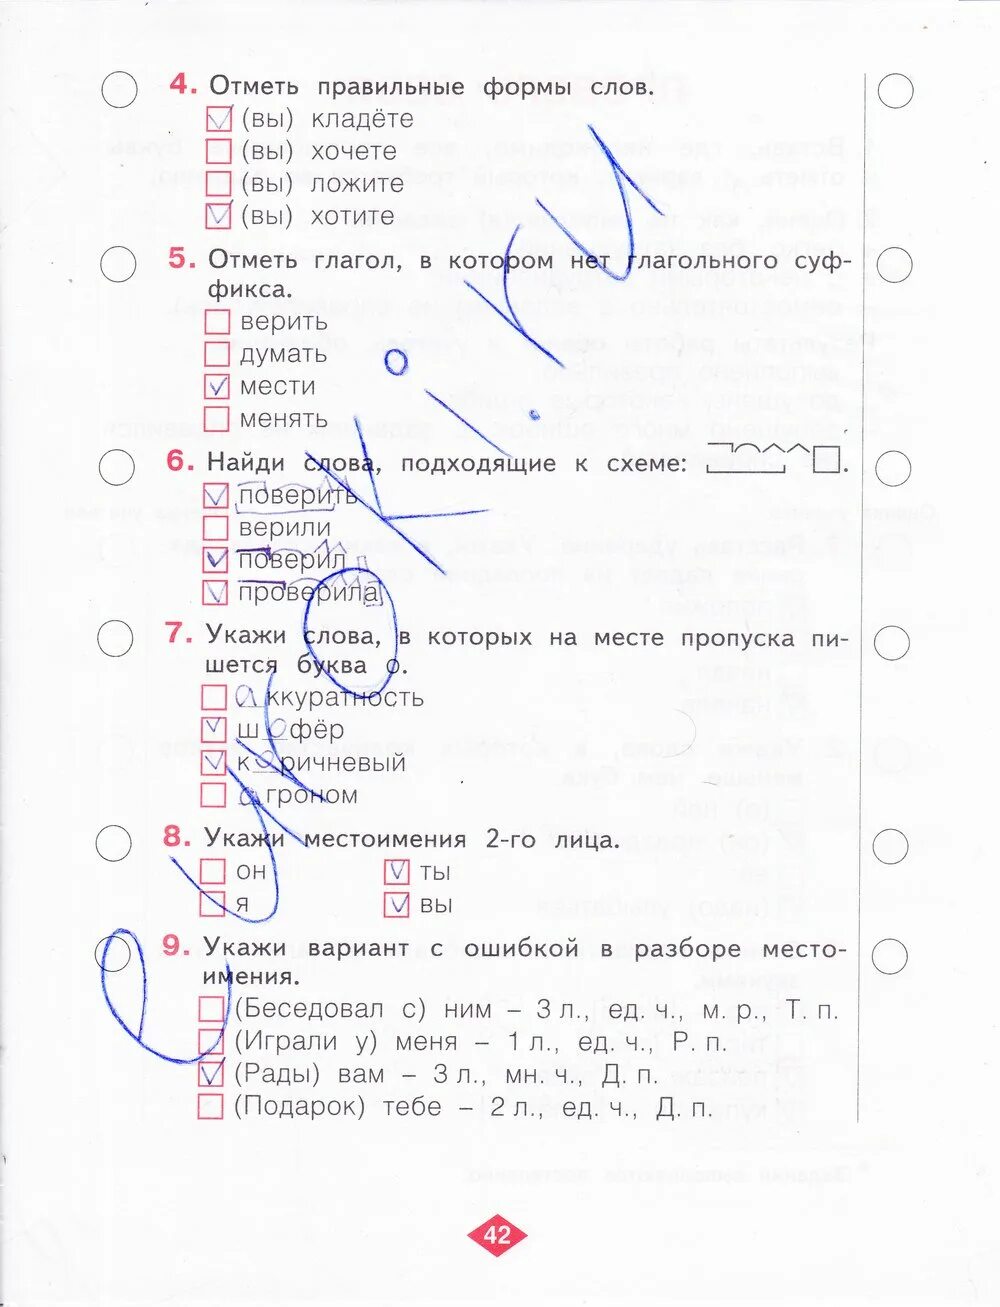 4. Отметь правильные формы слов.
(вы) кладёте
(вы) хочете
(вы) ложите
(вы) хотите
5. Отметь глагол, в котором нет глагольного суф-
фикса.
верить
думать
мести
менять
6. Найди слова, подходящие к схеме:
поверить
верили
поверил
проверила
7. Укажи слова, в которых на месте пропуска пи-
шется буква о.
аккуратность
шофёр
коричневый
агроном
8. Укажи местоимения 2-го лица.
он ты
я вы
9. Укажи вариант с ошибкой в разборе место-
имения.
(Беседовал с) ним – 3 л., ед. ч., м. р., Т. п.
(Играли у) меня – 1 л., ед. ч., Р. п.
(Рады) вам – 3 л., мн. ч., Д. п.
(Подарок) тебе – 2 л., ед. ч., Д. п.
42